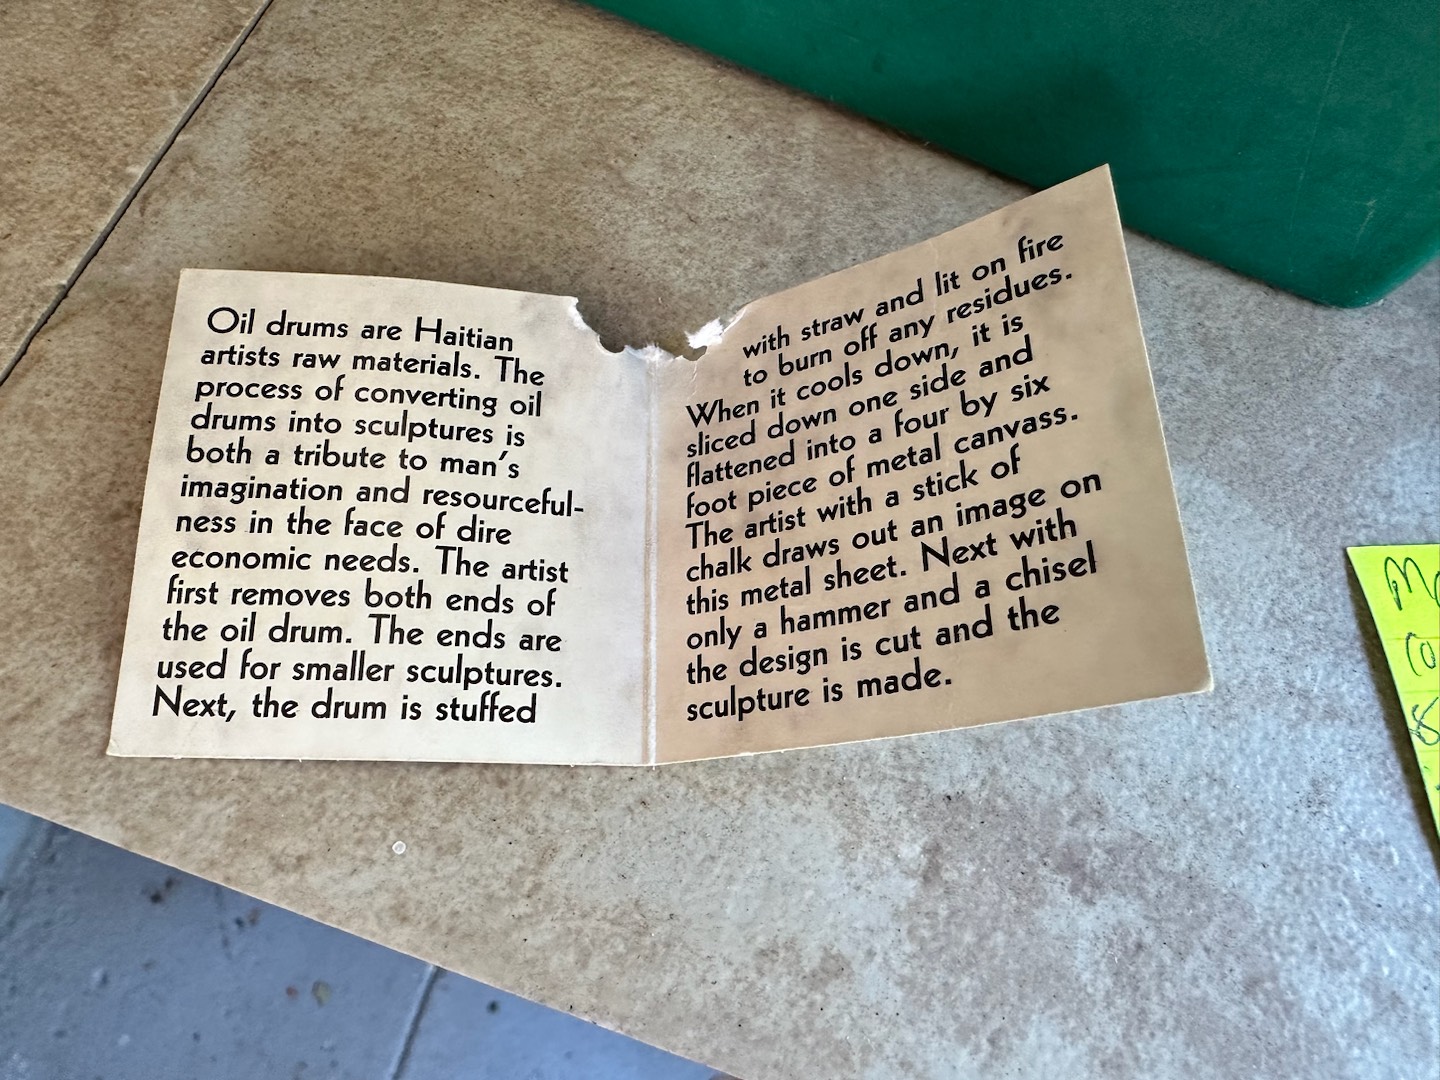 Oil drums are Haitian
artists raw materials. The
process of converting oil
drums into sculptures is
both a tribute to man's
imagination and resourceful-
ness in the face of dire
economic needs. The artist
first removes both ends of
the oil drum. The ends are
used for smaller sculptures.
Next, the drum is stuffed
with straw and lit on fire
to burn off any residues.
When it cools down, it is
sliced down one side and
flattened into a four by six
foot piece of metal canvass.
The artist with a stick of
chalk draws out an image on
this metal sheet. Next with
only a hammer and a chisel
the design is cut and the
sculpture is made.